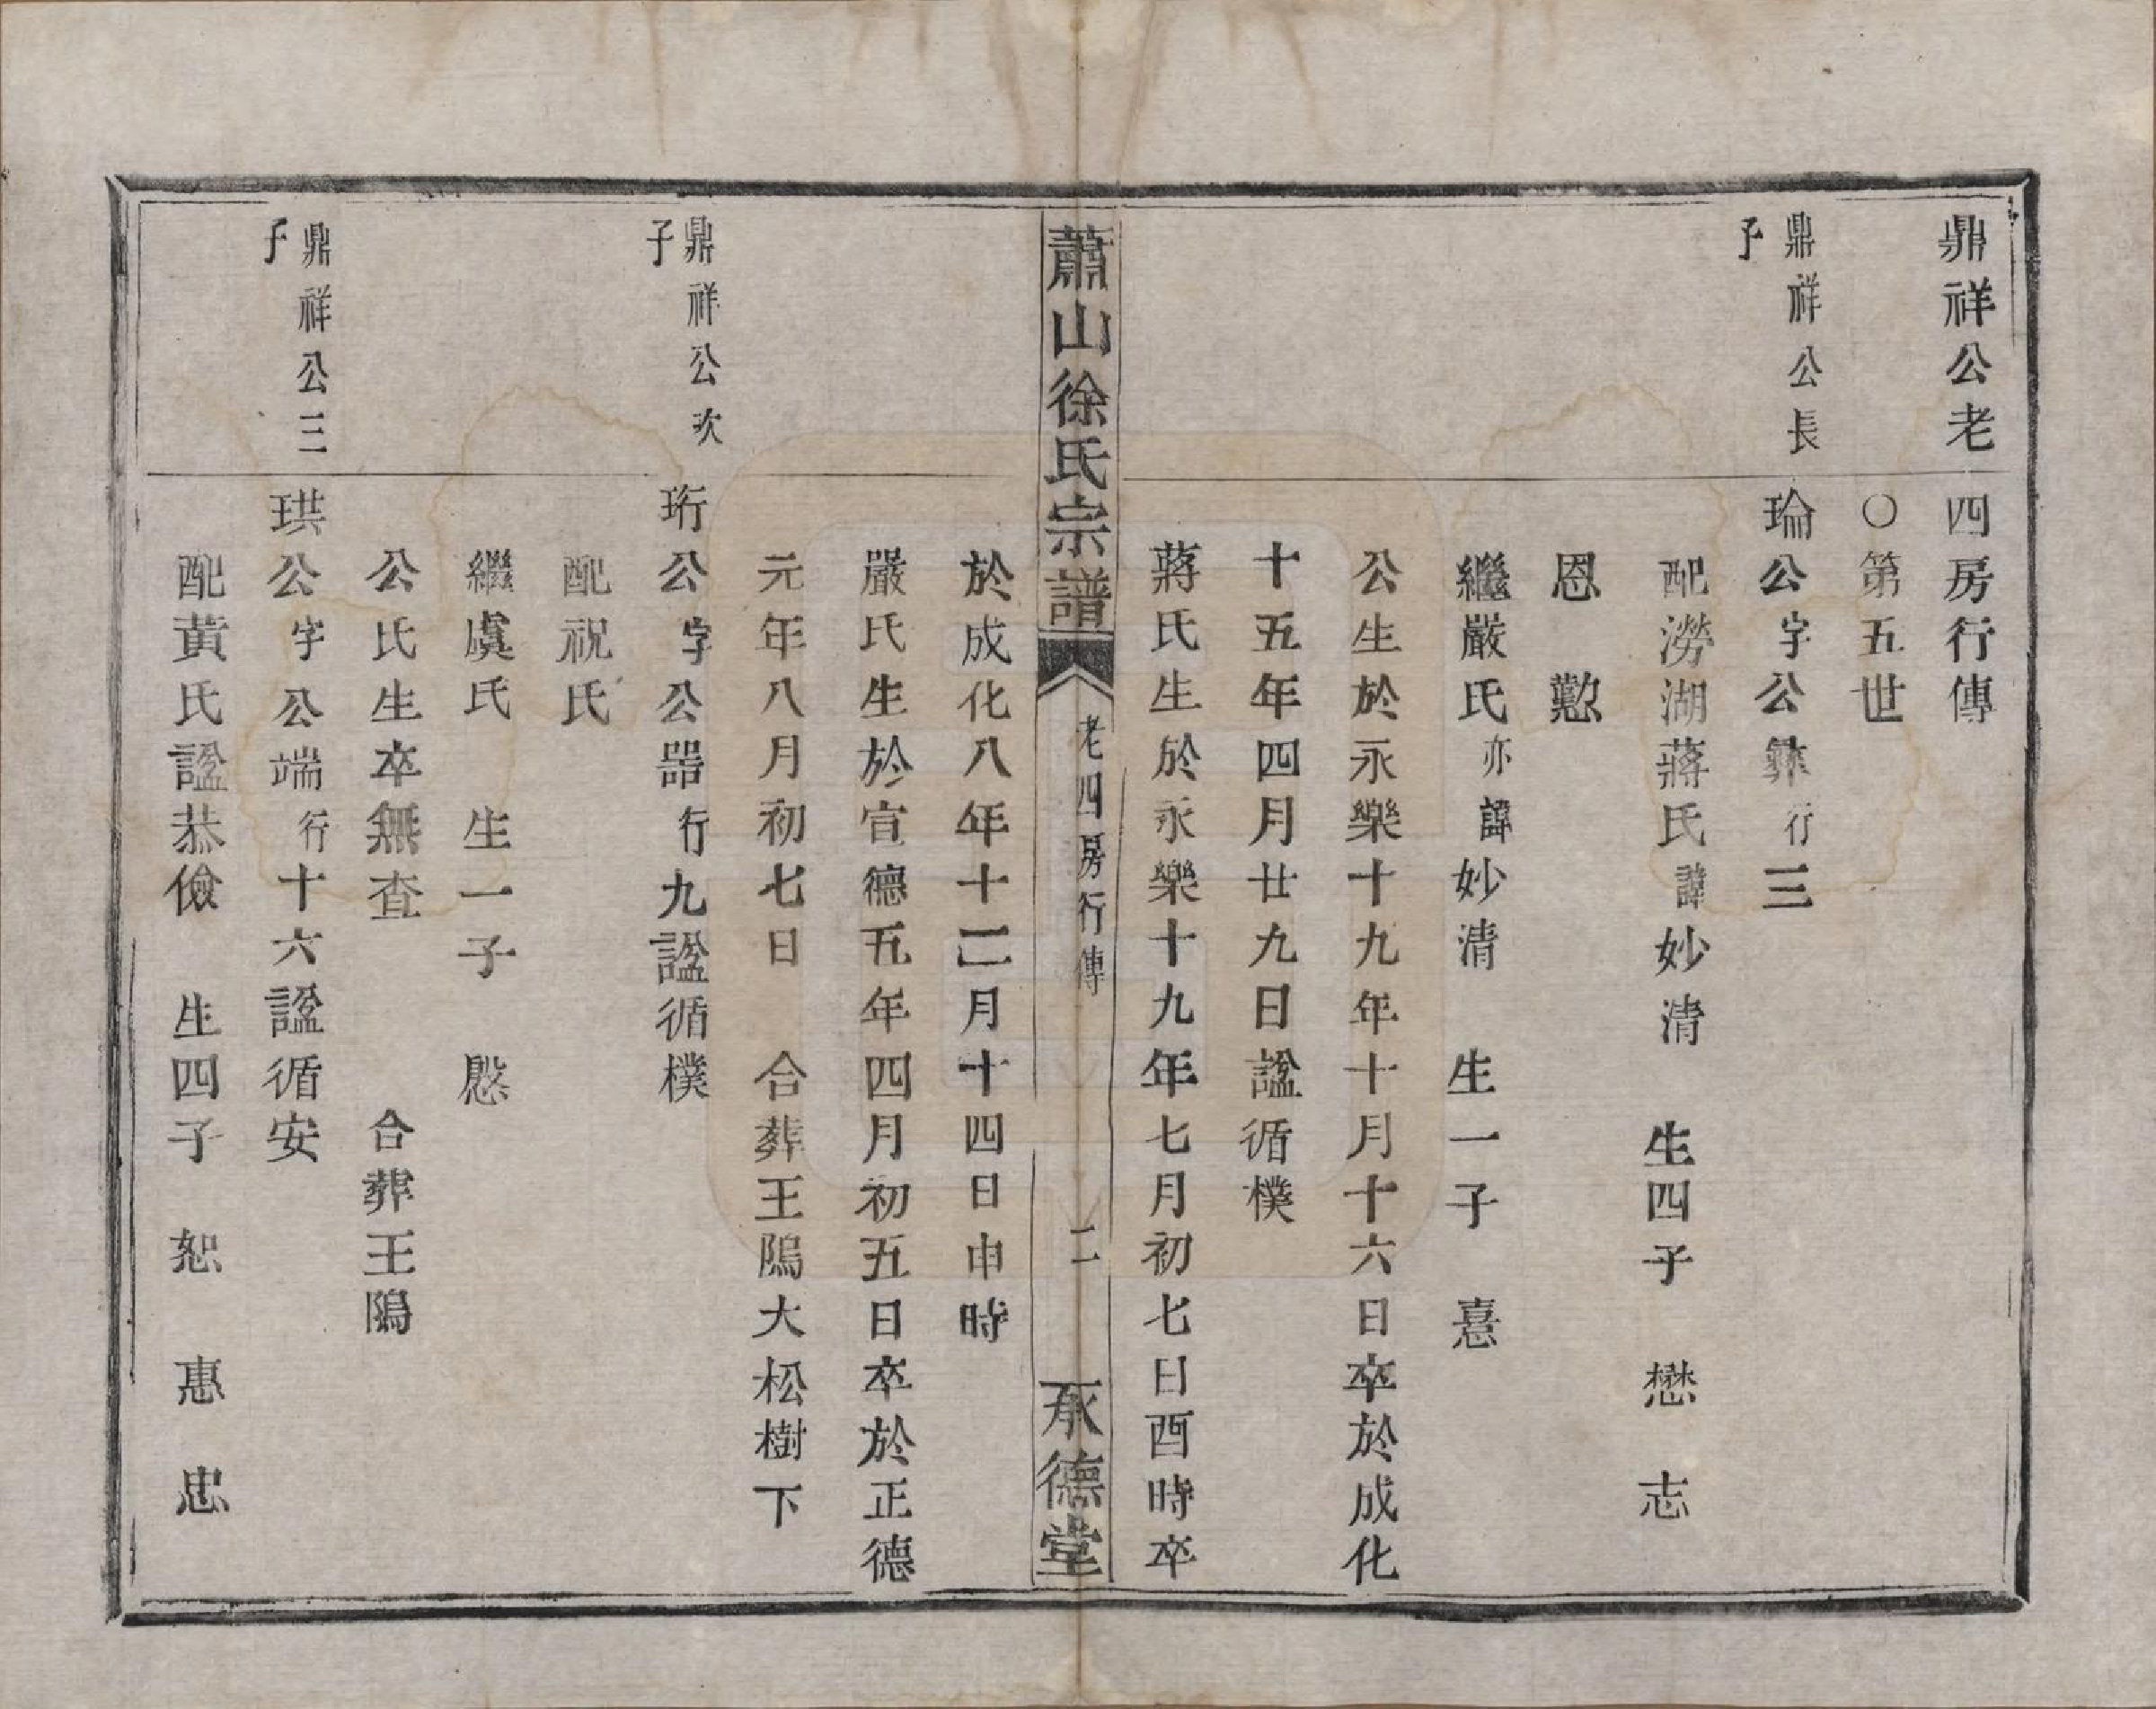 鼎祥公老四房行傳
○第五世
鼎祥公長子
瑜公字公彝行三
配澇湖蔣氏諱妙清　生四子　懋　志
恩　懃
繼嚴氏亦諱妙清　生一子　憙
公生於永樂十九年十月十六日卒於成化
十五年四月廿九日諡循樸
蔣氏生於永樂十九年七月初七日酉時卒
蕭山徐氏宗譜
老四房行傳
二
承德堂
於成化八年十二月十四日申時
嚴氏生於宣德五年四月初五日卒於正德
元年八月初七日　合葬王隝大松樹下
鼎祥公次子
珩公字公器行九諡循樸
配祝氏
繼虞氏　生一子　慇
公氏生卒無查　合葬王隝
鼎祥公三子
珙公字公端行十六諡循安
配黃氏諡恭儉　生四子　恕　惠　忠